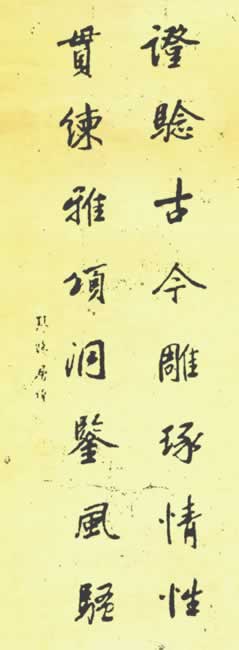 證騐古今雕琢情性
貫練雅頌洞鑒風騷